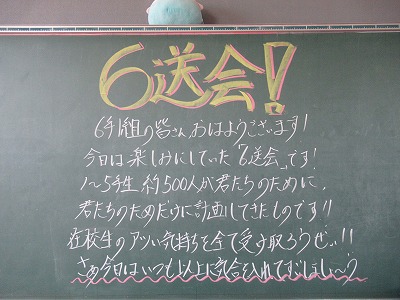 6送会!
6年1組の皆さん、おはようございます!
今日は楽しみにしていた「6送会」です!
1〜5年生 約500人が君たちのために、
君たちのためだけに計画してきたものです!!
在校生のアツい気持ちを全て受け取ろうぜぃ!!
さあ今日はいつも以上に気合を入れてすごしましょ〜う?